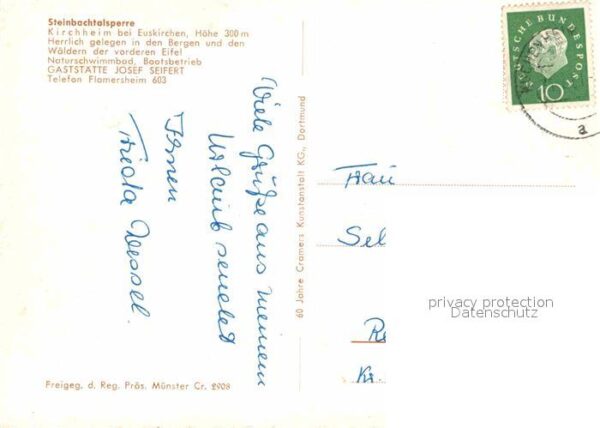 Steinbachtalsperre
Kirchheim bei Euskirchen, Höhe 300 m
Herrlich gelegen in den Bergen und den
Wäldern der vorderen Eifel
Naturschwimmbad, Bootsbetrieb
GASTSTÄTTE JOSEF SEIFERT
Telefon Flamersheim 603
Viele Grüße aus meinem
Urlaub sendet
Ihnen
Frieda Wessel.
60 Jahre Cramers Kunstanstalt KG., Dortmund
Freigeg. d. Reg. Präs. Münster Cr. 2908
DEUTSCHE BUNDESPOST
10
a
Frau
Sel
Re
Kr.
privacy protection
Datenschutz